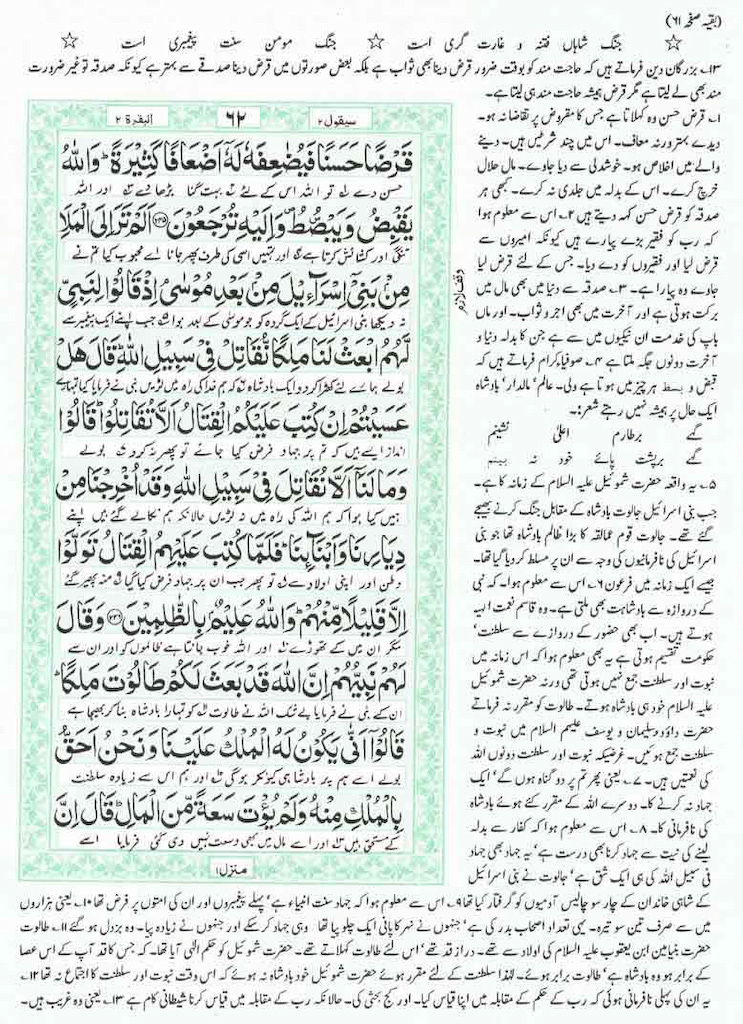 (بقیہ صفحہ ۶۱)
☆ جنگ شاہاں فتنہ و غارت گری است ☆ جنگ مومن سنت پیغمبری است ☆
۱۳؂ بزرگان دین فرماتے ہیں کہ حاجت مند کو بوقت ضرور قرض دینا بھی ثواب ہے بلکہ بعض صورتوں میں قرض دینا صدقے سے بہتر ہے کیونکہ صدقہ تو غیر ضرورت
مند بھی لے لیتا ہے مگر قرض ہمیشہ حاجت مند ہی لیتا ہے۔
۱؂ قرض حسن وہ کہلاتا ہے جس کا مقروض پر تقاضا نہ ہو۔
دیدے بہتر ورنہ معاف۔ اس میں چند شرطیں ہیں۔ دینے
والے میں اخلاص ہو۔ خوشدلی سے دیا جاوے۔ مال حلال
خرچ کرے۔ اس کے بدلہ میں جلدی نہ کرے۔ کبھی ہر
صدقہ کو قرض حسن کہہ دیتے ہیں ۲؂ اس سے معلوم ہوا
کہ رب کو فقیر بڑے پیارے ہیں کیونکہ امیروں سے
قرض لیا اور فقیروں کو دے دیا۔ جس کے لئے قرض لیا
جاوے وہ پیارا ہے۔ ۳؂ صدقہ سے دنیا میں بھی مال میں
برکت ہوتی ہے اور آخرت میں بھی اجر و ثواب۔ اور ماں
باپ کی خدمت ان نیکیوں میں سے ہے جن کا بدلہ دنیا و
آخرت دونوں جگہ ملتا ہے ۴؂ صوفیاء کرام فرماتے ہیں کہ
قبض و بسط ہر چیز میں ہوتا ہے ولی۔ عالم' مالدار' بادشاہ
ایک حال پر ہمیشہ نہیں رہتے شعر:۔
گہے برطارم اعلیٰ نشینم
گہے برپشت پائے خود نہ بینم
۵؂ یہ واقعہ حضرت شموئیل علیہ السلام کے زمانہ کا ہے۔
جب بنی اسرائیل جالوت بادشاہ کے مقابل جنگ کرنے بھیجے
گئے تھے۔ جالوت قوم عمالقہ کا بڑا ظالم بادشاہ تھا جو بنی
اسرائیل کی نافرمانیوں کی وجہ سے ان پر مسلط کر دیا گیا تھا۔
جیسے ایک زمانہ میں فرعون ۶؂ اس سے معلوم ہوا۔ کہ نبی
کے دروازہ سے بادشاہت بھی ملتی ہے۔ وہ قاسم نعمت الہیہ
ہوتے ہیں۔ اب بھی حضور کے دروازے سے سلطنت'
حکومت تقسیم ہوتی ہے یہ بھی معلوم ہوا کہ اس زمانہ میں
نبوت اور سلطنت جمع نہیں ہوتی تھی ورنہ حضرت شموئیل
علیہ السلام خود ہی بادشاہ ہوتے۔ طالوت کو مقرر نہ فرماتے
حضرت داؤد و سلیمان و یوسف علیہم السلام میں نبوت و
سلطنت جمع ہوئیں۔ غرضیکہ نبوت اور سلطنت دونوں اللہ
کی نعمتیں ہیں۔ ۷؂ یعنی پھر تم پر دو گناہ ہوں گے' ایک
جہاد نہ کرنے کا۔ دوسرے اللہ کے مقرر کئے ہوئے بادشاہ
کی نافرمانی کا۔ ۸؂ اس سے معلوم ہوا کہ کفار سے بدلہ
لینے کی نیت سے جہاد کرنا بھی درست ہے' یہ جہاد بھی جہاد
فی سبیل اللہ کی ہی ایک شق ہے' جالوت نے بنی اسرائیل
کے شاہی خاندان کے چار سو چالیس آدمیوں کو گرفتار کیا تھا ۹؂ اس سے معلوم ہوا کہ جہاد سنت انبیاء ہے' پہلے پیغمبروں اور ان کی امتوں پر فرض تھا ۱۰؂ یعنی ہزاروں
میں سے صرف تین سو تیرہ۔ یہی تعداد اصحاب بدر کی ہے' جنہوں نے نہر کا پانی ایک چلو پیا تھا وہی جہاد کر سکے اور جنہوں نے زیادہ پیا۔ وہ بزدل ہو گئے ۱۱؂ طالوت
حضرت بنیامین ابن یعقوب علیہ السلام کی اولاد سے تھے۔ دراز قد تھے' اس لئے طالوت کہلاتے تھے۔ حضرت شموئیل کو حکم الٰہی آیا تھا۔ کہ جس کا قد آپ کے اس عصا
کے برابر ہو وہ بادشاہ ہے' طالوت برابر ہوئے۔ لہٰذا سلطنت کے لئے مقرر ہوئے حضرت شموئیل خود بادشاہ نہ ہوئے کہ اس وقت نبوت اور سلطنت کا اجتماع نہ تھا ۱۲؂
یہ ان کی پہلی نافرمانی ہوئی کہ رب کے حکم کے مقابلہ میں اپنا قیاس کیا۔ اور کج بحثی کی۔ حالانکہ رب کے مقابلہ میں قیاس کرنا شیطانی کام ہے ۱۳؂ یعنی وہ غریب ہیں۔
سیقول ۲ ۶۲ البقرۃ ۲
قَرْضًا حَسَنًا فَيُضٰعِفَهٗ لَهٗ اَضْعَافًا كَثِيْرَةً ؕ وَاللّٰهُ
حسن دے تو اللہ اس کے لئے بہت گنا بڑھا دے اور اللہ
يَقْبِضُ وَيَبْصُۜطُ وَاِلَيْهِ تُرْجَعُوْنَ ﴿۲۴۵﴾ اَلَمْ تَرَ اِلَى الْمَلَاِ
تنگی اور کشائش کرتا ہے اور تمہیں اسی کی طرف پھر جانا اے محبوب کیا تم نے
مِنْۢ بَنِيْۤ اِسْرَآءِيْلَ مِنْۢ بَعْدِ مُوْسٰى اِذْ قَالُوْا لِنَبِيٍّ
نہ دیکھا بنی اسرائیل کے ایک گروہ کو جو موسیٰ کے بعد ہوا جب اپنے ایک پیغمبر سے
لَّهُمُ ابْعَثْ لَنَا مَلِكًا نُّقَاتِلْ فِيْ سَبِيْلِ اللّٰهِ ؕ قَالَ هَلْ
بولے ہمارے لئے کھڑا کر دو ایک بادشاہ کہ ہم خدا کی راہ میں لڑیں نبی نے فرمایا کیا تمہارے
عَسَيْتُمْ اِنْ كُتِبَ عَلَيْكُمُ الْقِتَالُ اَلَّا تُقَاتِلُوْا ؕ قَالُوْا
انداز ایسے ہیں کہ تم پر جہاد فرض کیا جائے تو پھر نہ کرو بولے
وَمَا لَنَاۤ اَلَّا نُقَاتِلَ فِيْ سَبِيْلِ اللّٰهِ وَقَدْ اُخْرِجْنَا مِنْ
ہمیں کیا ہوا کہ ہم اللہ کی راہ میں نہ لڑیں حالانکہ ہم نکالے گئے ہیں اپنے
دِيَارِنَا وَاَبْنَآئِنَا ؕ فَلَمَّا كُتِبَ عَلَيْهِمُ الْقِتَالُ تَوَلَّوْا
وطن اور اپنی اولاد سے تو پھر جب ان پر جہاد فرض کیا گیا منہ پھیر گئے
اِلَّا قَلِيْلًا مِّنْهُمْ ؕ وَاللّٰهُ عَلِيْمٌۢ بِالظّٰلِمِيْنَ ﴿۲۴۶﴾ وَقَالَ
مگر ان میں کے تھوڑے اور اللہ خوب جانتا ہے ظالموں کو اور ان سے
لَهُمْ نَبِيُّهُمْ اِنَّ اللّٰهَ قَدْ بَعَثَ لَكُمْ طَالُوْتَ مَلِكًا ؕ
ان کے نبی نے فرمایا بے شک اللہ نے طالوت کو تمہارا بادشاہ بنا کر بھیجا ہے
قَالُوْۤا اَنّٰى يَكُوْنُ لَهُ الْمُلْكُ عَلَيْنَا وَنَحْنُ اَحَقُّ
بولے اسے ہم پر بادشاہی کیونکر ہوگی اور ہم اس سے زیادہ سلطنت
بِالْمُلْكِ مِنْهُ وَلَمْ يُؤْتَ سَعَةً مِّنَ الْمَالِ ؕ قَالَ اِنَّ
کے مستحق ہیں اور اسے مال میں بھی وسعت نہیں دی گئی فرمایا اسے
منزل ۱
وقف لازم